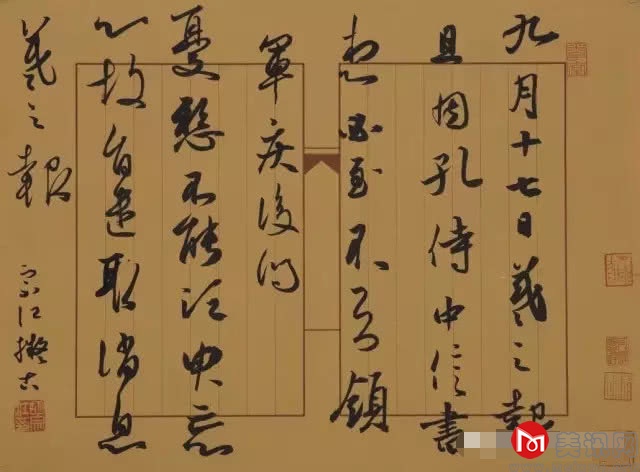 九月十七日羲之報
且因孔侍中信書
想必至不知領
軍疾後問
憂懸不能須臾忘
心故旨遣取消息
羲之報
宗江擬古